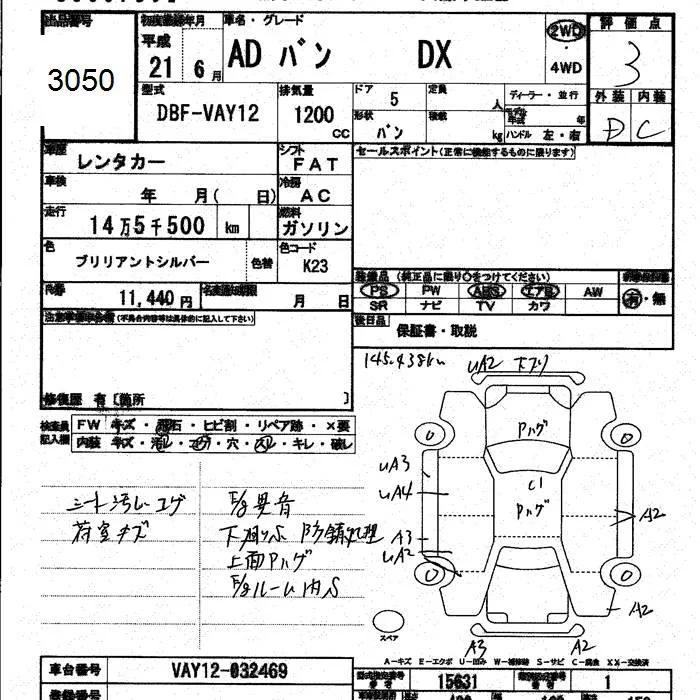 出品番号 初度登録年月 車名・グレード 評価点
3050
平成 21 6月 AD バン DX 2WD ・ 4WD 3
型式 排気量 ドア 定員 ディーラー・並行 外装 内装
DBF-VAY12 1200 CC 5 人 モデル年式 年 D C
形状 バン 積載 kg ハンドル 左・右
車歴 レンタカー シフト FAT セールスポイント(正常に機能するものに限ります)
車検 年 月( 日) 冷房 AC
走行 14万5千500 km 燃料 ガソリン
色 ブリリアントシルバー 色替 色コード K23
装備品 (純正品に限り○をつけてください)
11,440 円 名義変更期限 月 日
PS PW ABS エアB AW 有・無
SR ナビ TV カワ
後日品 保証書・取説
(不具合内容等は具体的に記入して下さい)
145,438km UA2 下ブリ
修復歴 有 [箇所 ]
検査員記入欄 FW キズ・飛石・ヒビ割・リペア跡・×要
内装 キズ・汚レ・コゲ・穴・スレ・キレ・破レ
Pハゲ
C1
Pハゲ
UA3
UA4
A3
UA2
A2
A2
シート汚レコゲ F/g異音
荷室キズ 下廻りS 防錆処理
上面Pハゲ
F/gルーム内S
スペア
A3 A2
A-キズ E-エクボ U-凹み W-補修跡 S-サビ C-腐食 XX-交換済
車台番号 VAY12-032469
型式指定番号 15631 類別区分番号 1